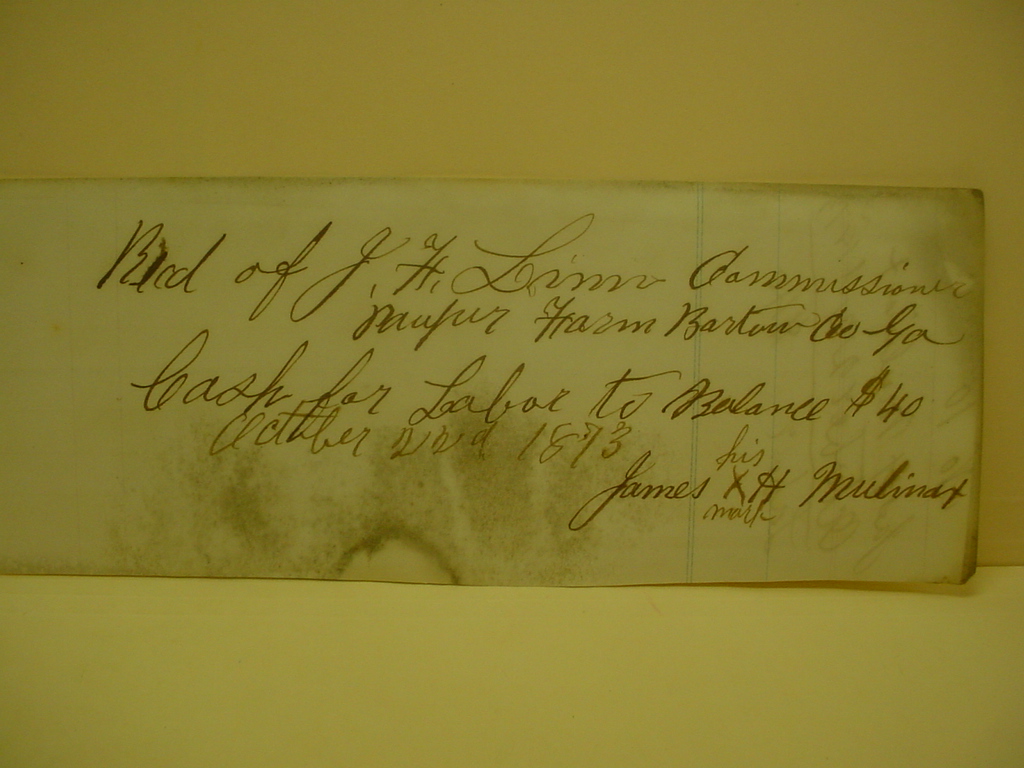 Recd of J. H. Linn Commissioner
Pauper Farm Bartow Co Ga
Cash for Labor to Balance $40
October 22d 1873
his
James X H Mulinax
mark